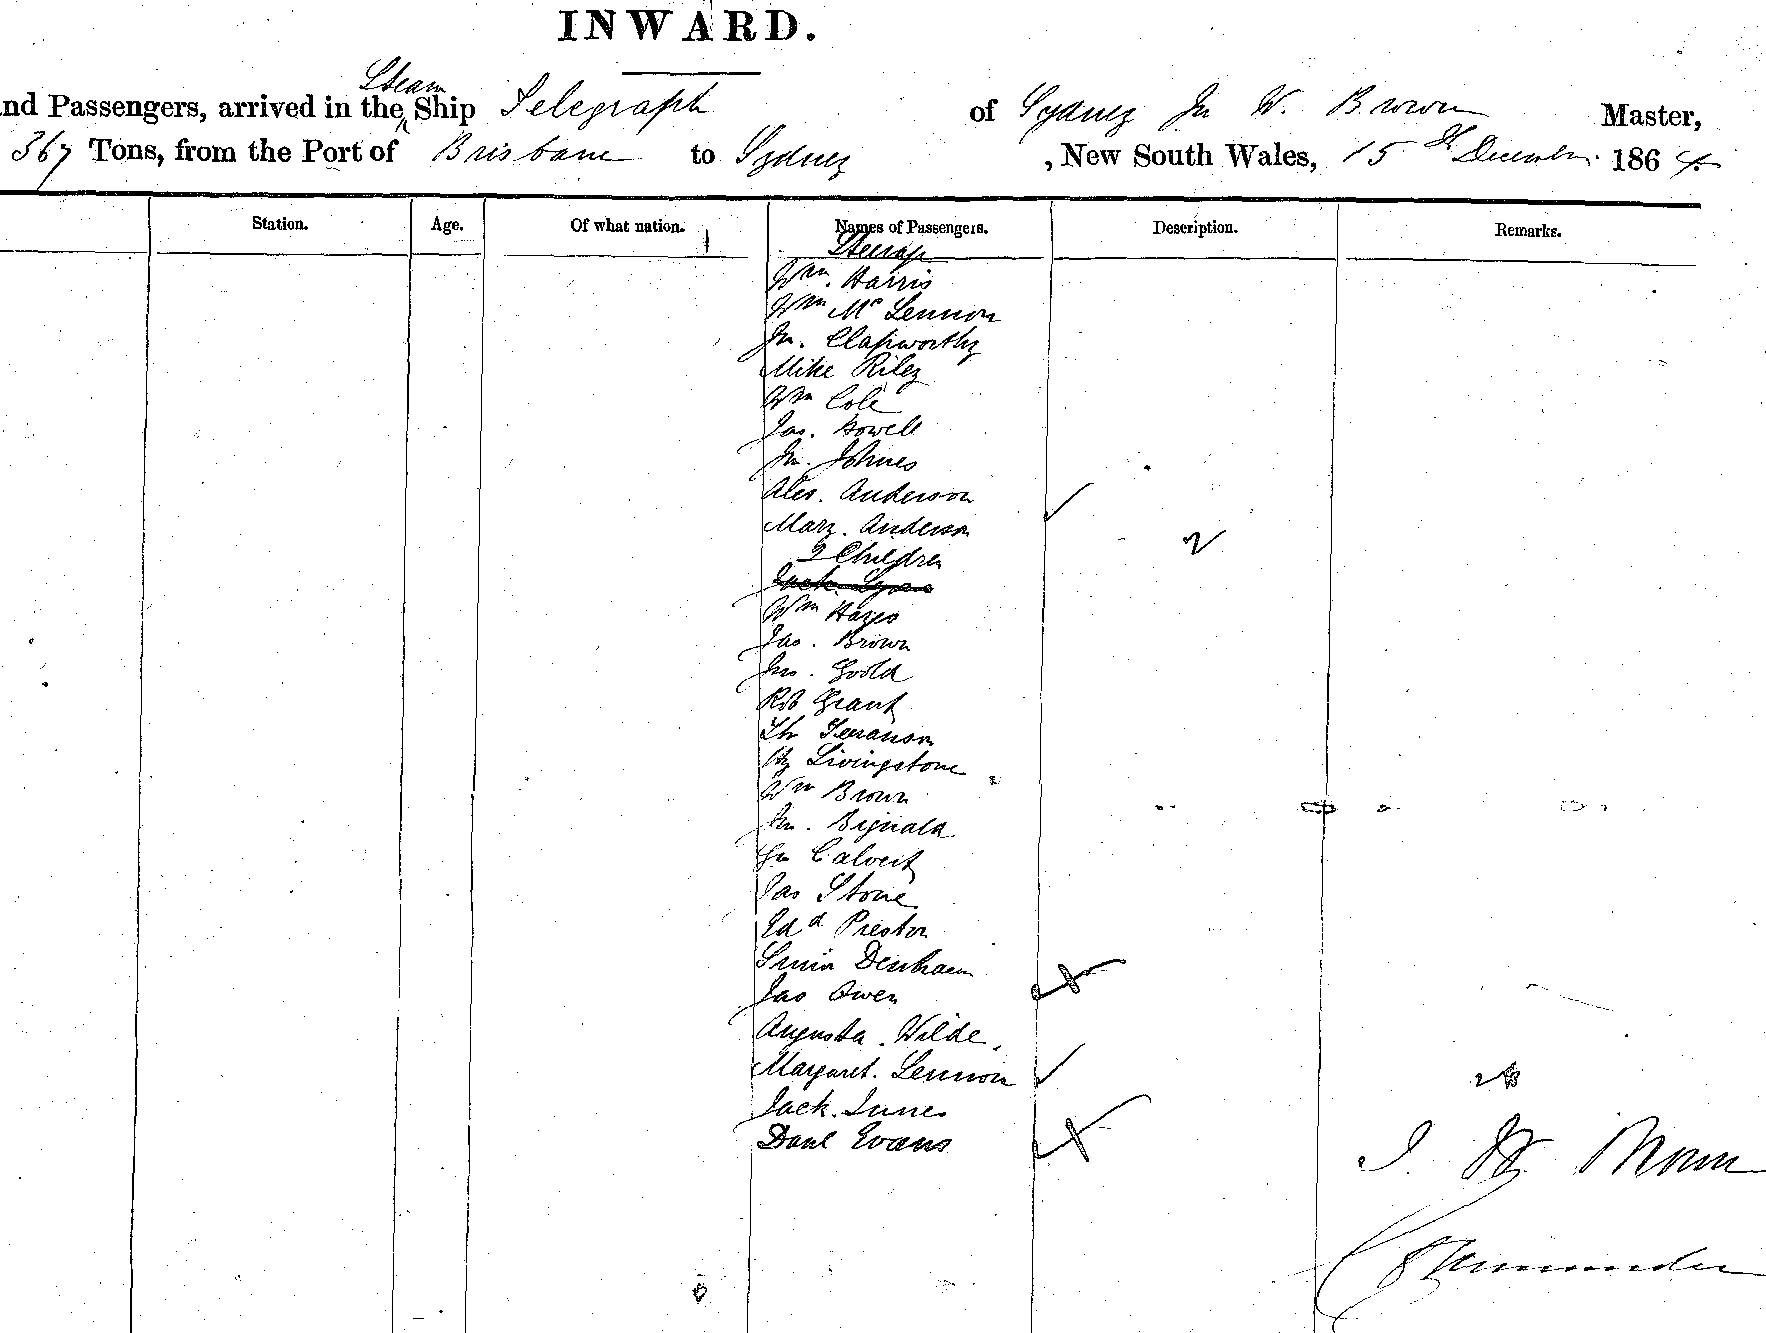 INWARD.
Steam
nd Passengers, arrived in the Ship Telegraph of Sydney Jn W. Brown Master,
367 Tons, from the Port of Brisbane to Sydney , New South Wales, 15th December 1864.
Station. Age. Of what nation. Names of Passengers. Description. Remarks.
Steerage
Wm. Harris
Wm Mc Lennon
Jn. Clapworthy
Mike Riley
Wm Cole
Jas. Howell
Jn. Johnes
Alex. Anderson
Mary. Anderson
2 Children
2
Jack Lyons
Wm Hayes
Jas. Brown
Jno. Goold
Rob Grant
Livingstone
Wm Brown
Jn. Bignald
Jn Calvert
Jas Stone
Edd Preston
Denham
Jas Owen
Augusta. Wilde.
Margaret. Lennon
Jack. Innes
Danl Evans
J. W. Brown
Commander